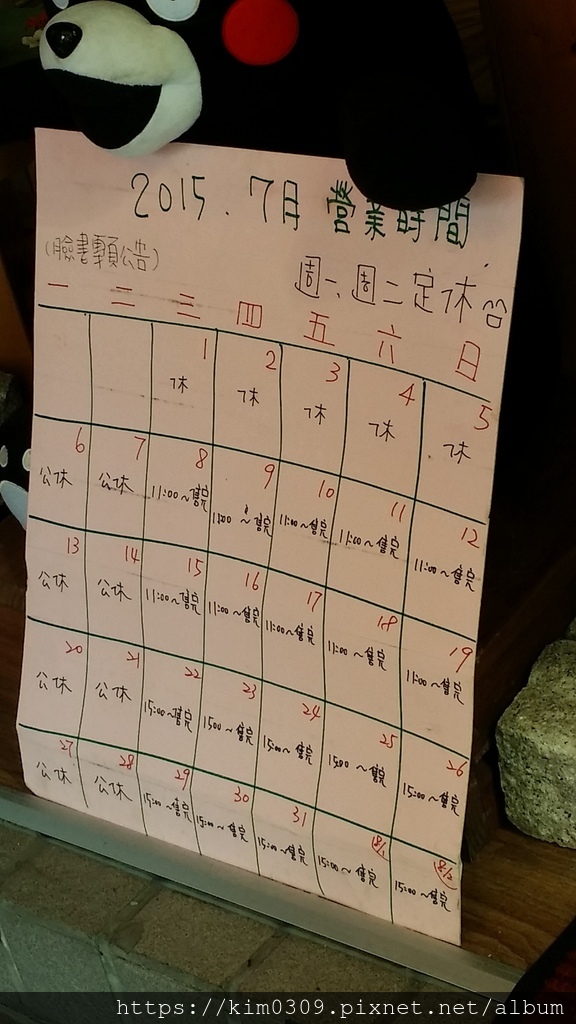 2015.7月 營業時間
(臉書預公告)
週一、週二定休
一 二 三 四 五 六 日
1 2 3 4 5
休 休 休 休 休
6 7 8 9 10 11 12
公休 公休 11:00~售完 11:00~售完 11:00~售完 11:00~售完 11:00~售完
13 14 15 16 17 18 19
公休 公休 11:00~售完 11:00~售完 11:00~售完 11:00~售完 11:00~售完
20 21 22 23 24 25 26
公休 公休 15:00~售完 15:00~售完 15:00~售完 15:00~售完 15:00~售完
27 28 29 30 31 8/1 8/2
公休 公休 15:00~售完 15:00~售完 15:00~售完 15:00~售完 15:00~售完
https://kim0309.pixnet.net/album